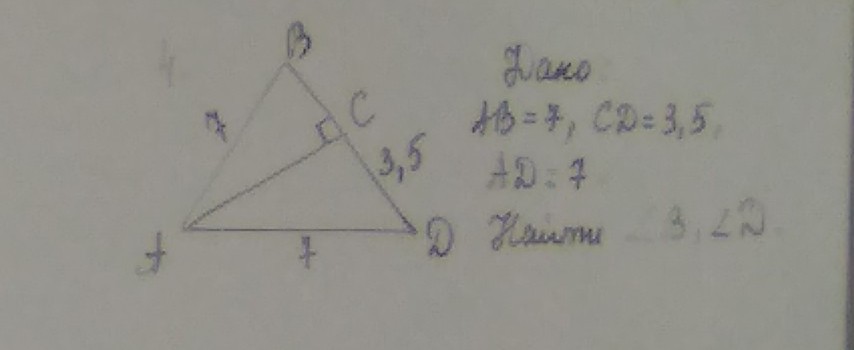 4.
B
Дано
7
C
AB = 7, CD = 3,5,
3,5
AD = 7
A
7
D
Найти ∠B, ∠D.